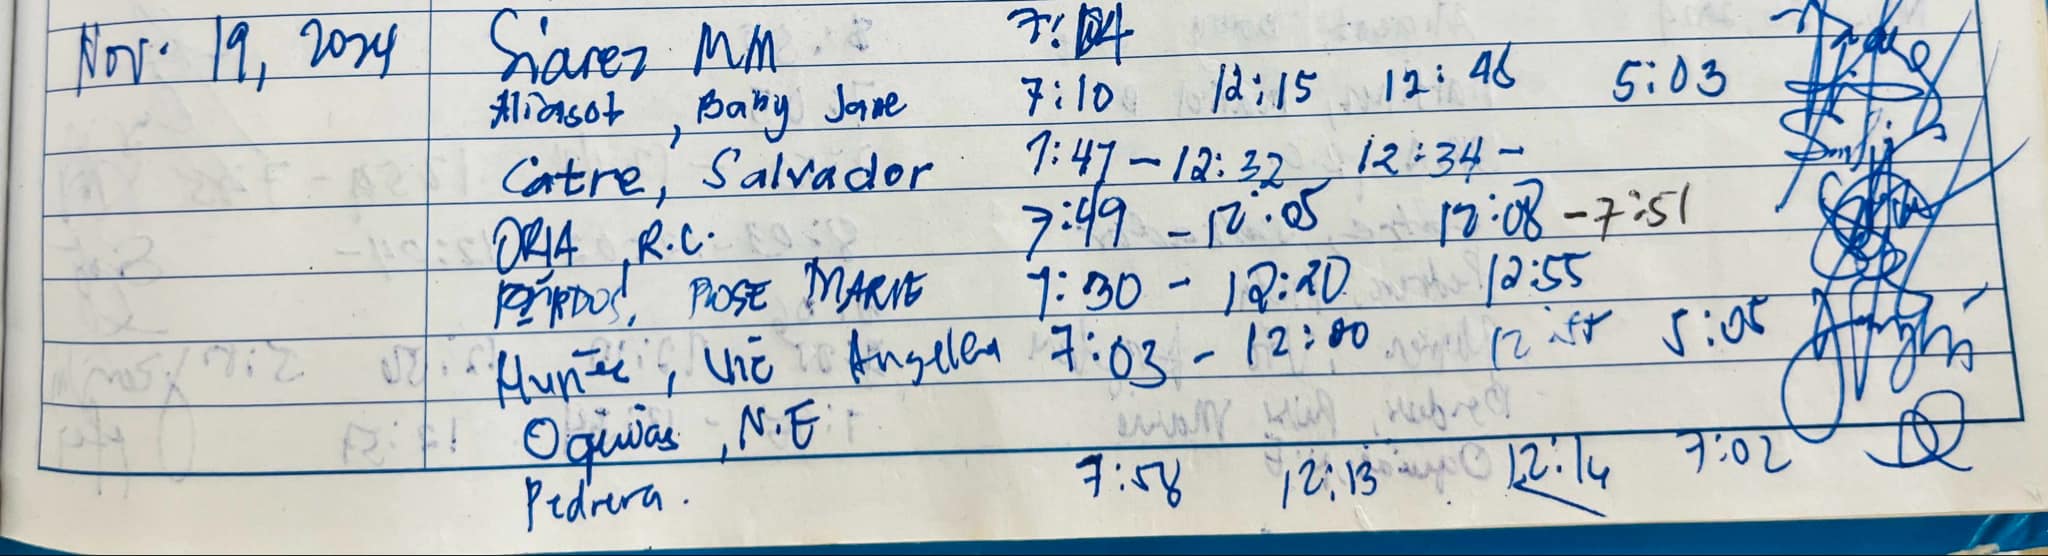 Nov. 19, 2024 Siarez MM 7:04
Aliasot, Baby Jane 7:10 12:15 12:46 5:03
Catre, Salvador 7:47 - 12:32 12:34 -
ORIA, R.C. 7:49 - 12:05 12:08 - 7:51
ROSE MARIE 7:30 - 12:20 12:55
Vic 7:03 - 12:00 5:05
Oquias, N.E
Pedrera. 7:58 12:13 12:14 7:02